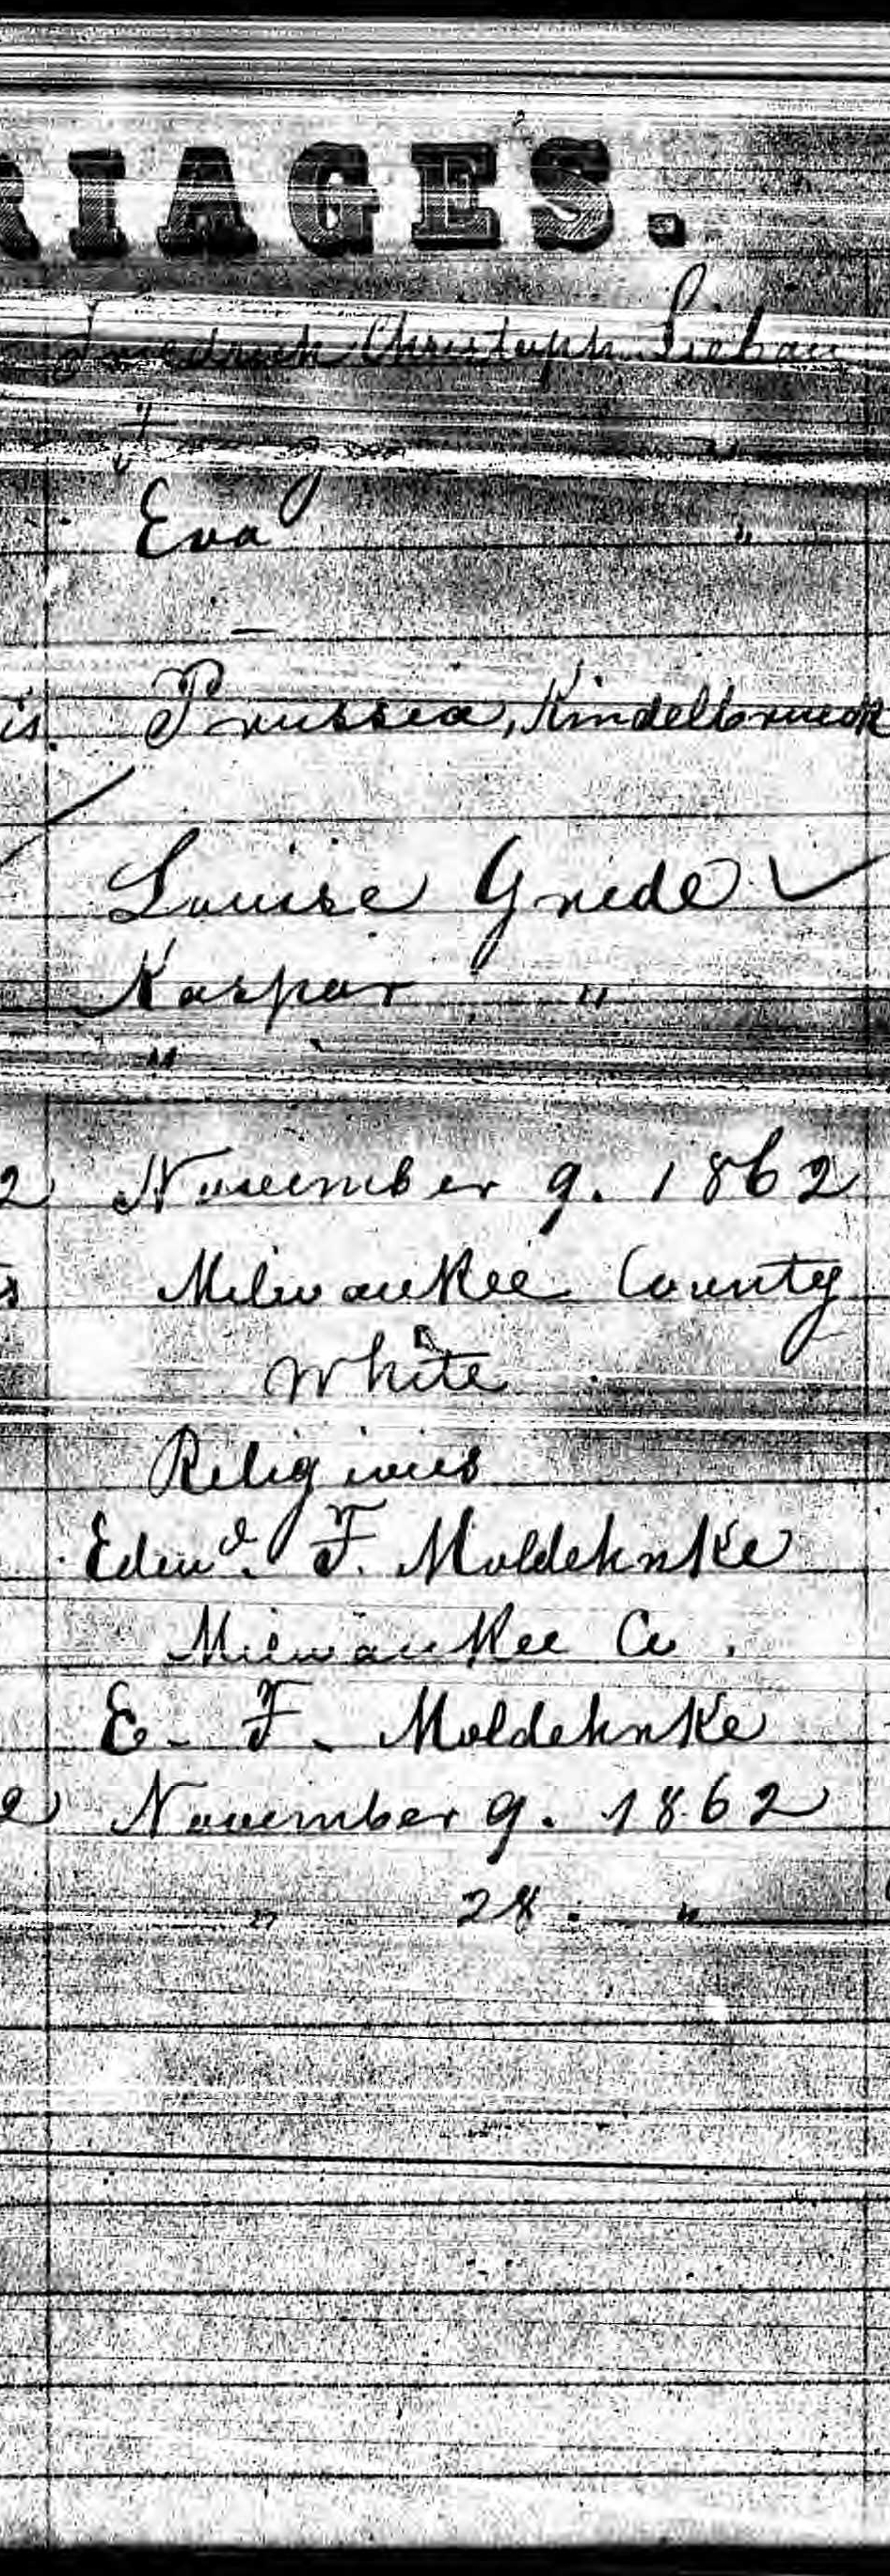 RIAGES.
Friedrich Christoph Liebau
"
Eva "
is. Prussia, Kindelbrueck
Louise Grede
Kaspar "
"
2 November 9. 1862
Milwaukee County
White
Religious
Edw^d. F. Moldehnke
Milwaukee Co.
E. F. Moldehnke
2 November 9. 1862
" 28. "